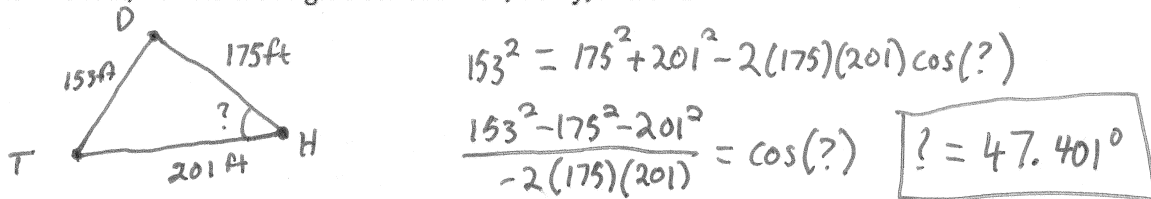 D
175ft
153ft
?
H
T
201 ft
153² = 175² + 201² - 2(175)(201) cos(?)
153² - 175² - 201²
-2(175)(201)
= cos(?)
? = 47.401°